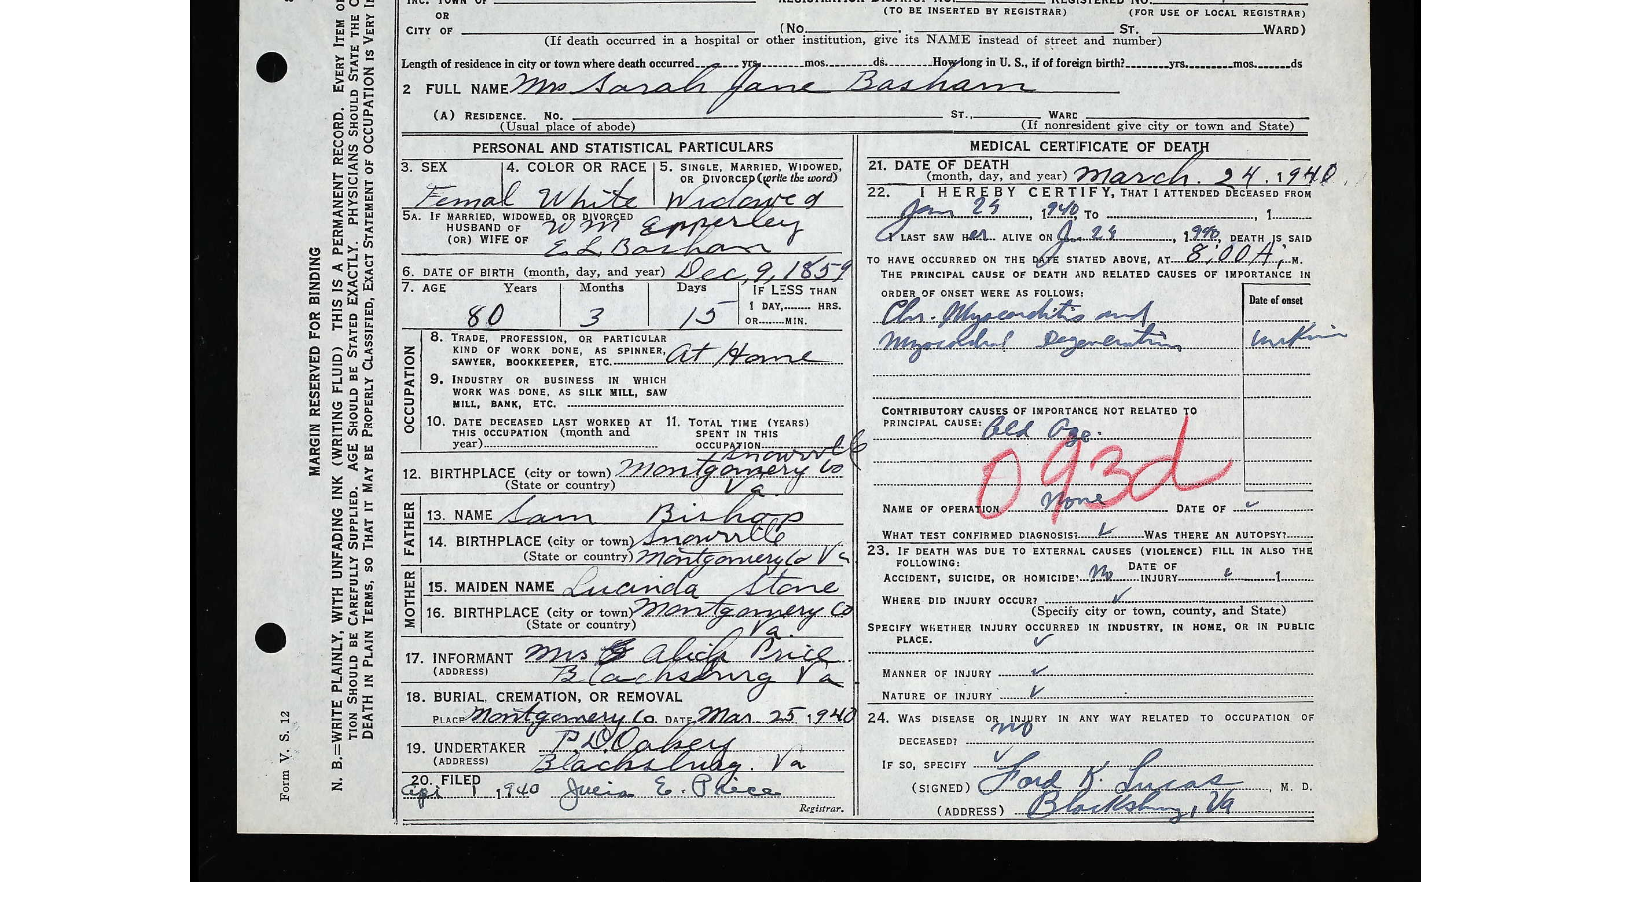 OR
(TO BE INSERTED BY REGISTRAR) (FOR USE OF LOCAL REGISTRAR)
CITY OF (No. ST. WARD)
(If death occurred in a hospital or other institution, give its NAME instead of street and number)
Length of residence in city or town where death occurred yrs. mos. ds. How long in U. S., if of foreign birth? yrs. mos. ds
2 FULL NAME Mrs Sarah Jane Basham
(A) RESIDENCE. No. ST., WARD
(Usual place of abode) (If nonresident give city or town and State)
MARGIN RESERVED FOR BINDING
N. B.=WRITE PLAINLY, WITH UNFADING INK (WRITING FLUID) THIS IS A PERMANENT RECORD. EVERY ITEM OF
TION SHOULD BE CAREFULLY SUPPLIED. AGE SHOULD BE STATED EXACTLY. PHYSICIANS SHOULD STATE THE
DEATH IN PLAIN TERMS, SO THAT IT MAY BE PROPERLY CLASSIFIED, EXACT STATEMENT OF OCCUPATION IS VERY
Form V. S. 12
PERSONAL AND STATISTICAL PARTICULARS
3. SEX 4. COLOR OR RACE 5. SINGLE, MARRIED, WIDOWED, OR DIVORCED (write the word)
Femal White Widowed
5A. IF MARRIED, WIDOWED, OR DIVORCED
HUSBAND OF Wm Epperley
(OR) WIFE OF E. L. Basham
6. DATE OF BIRTH (month, day, and year) Dec, 9, 1859
7. AGE Years Months Days IF LESS THAN
1 DAY, HRS.
80 3 15 OR MIN.
OCCUPATION
8. TRADE, PROFESSION, OR PARTICULAR
KIND OF WORK DONE, AS SPINNER,
SAWYER, BOOKKEEPER, ETC. At Home
9. INDUSTRY OR BUSINESS IN WHICH
WORK WAS DONE, AS SILK MILL, SAW
MILL, BANK, ETC.
10. DATE DECEASED LAST WORKED AT 11. TOTAL TIME (YEARS)
THIS OCCUPATION (month and SPENT IN THIS
year) OCCUPATION
Snowville
12. BIRTHPLACE (city or town) Montgomery Co
(State or country) Va.
FATHER
13. NAME Sam Bishop
14. BIRTHPLACE (city or town) Snowville
(State or country) Montgomery Co Va
MOTHER
15. MAIDEN NAME Lucinda Stone
16. BIRTHPLACE (city or town) Montgomery Co
(State or country) Va.
17. INFORMANT Mrs Price
(ADDRESS) Blacksburg Va
18. BURIAL, CREMATION, OR REMOVAL
PLACE Montgomery Co DATE Mar. 25 1940
19. UNDERTAKER P. D. Oakey
(ADDRESS) Blacksburg. Va
20. FILED
Apr 1, 1940 E. Price
Registrar.
MEDICAL CERTIFICATE OF DEATH
21. DATE OF DEATH
(month, day, and year) March. 24. 1940
22. I HEREBY CERTIFY, THAT I ATTENDED DECEASED FROM
Jan 29, 1940, TO , 1
I LAST SAW HER ALIVE ON 29, 1940, DEATH IS SAID
TO HAVE OCCURRED ON THE DATE STATED ABOVE, AT 8:00 A, M.
THE PRINCIPAL CAUSE OF DEATH AND RELATED CAUSES OF IMPORTANCE IN
ORDER OF ONSET WERE AS FOLLOWS: Date of onset
Chr. Myocarditis and
Myocardial Degeneration
CONTRIBUTORY CAUSES OF IMPORTANCE NOT RELATED TO
PRINCIPAL CAUSE: Old Age.
093d
NAME OF OPERATION None DATE OF
WHAT TEST CONFIRMED DIAGNOSIS? WAS THERE AN AUTOPSY?
23. IF DEATH WAS DUE TO EXTERNAL CAUSES (VIOLENCE) FILL IN ALSO THE
FOLLOWING: DATE OF
ACCIDENT, SUICIDE, OR HOMICIDE? No INJURY 1
WHERE DID INJURY OCCUR?
(Specify city or town, county, and State)
SPECIFY WHETHER INJURY OCCURRED IN INDUSTRY, IN HOME, OR IN PUBLIC
PLACE.
MANNER OF INJURY
NATURE OF INJURY
24. WAS DISEASE OR INJURY IN ANY WAY RELATED TO OCCUPATION OF
DECEASED? no
IF SO, SPECIFY
(SIGNED) Ford K. Lucas, M. D.
(ADDRESS) Blacksburg, Va